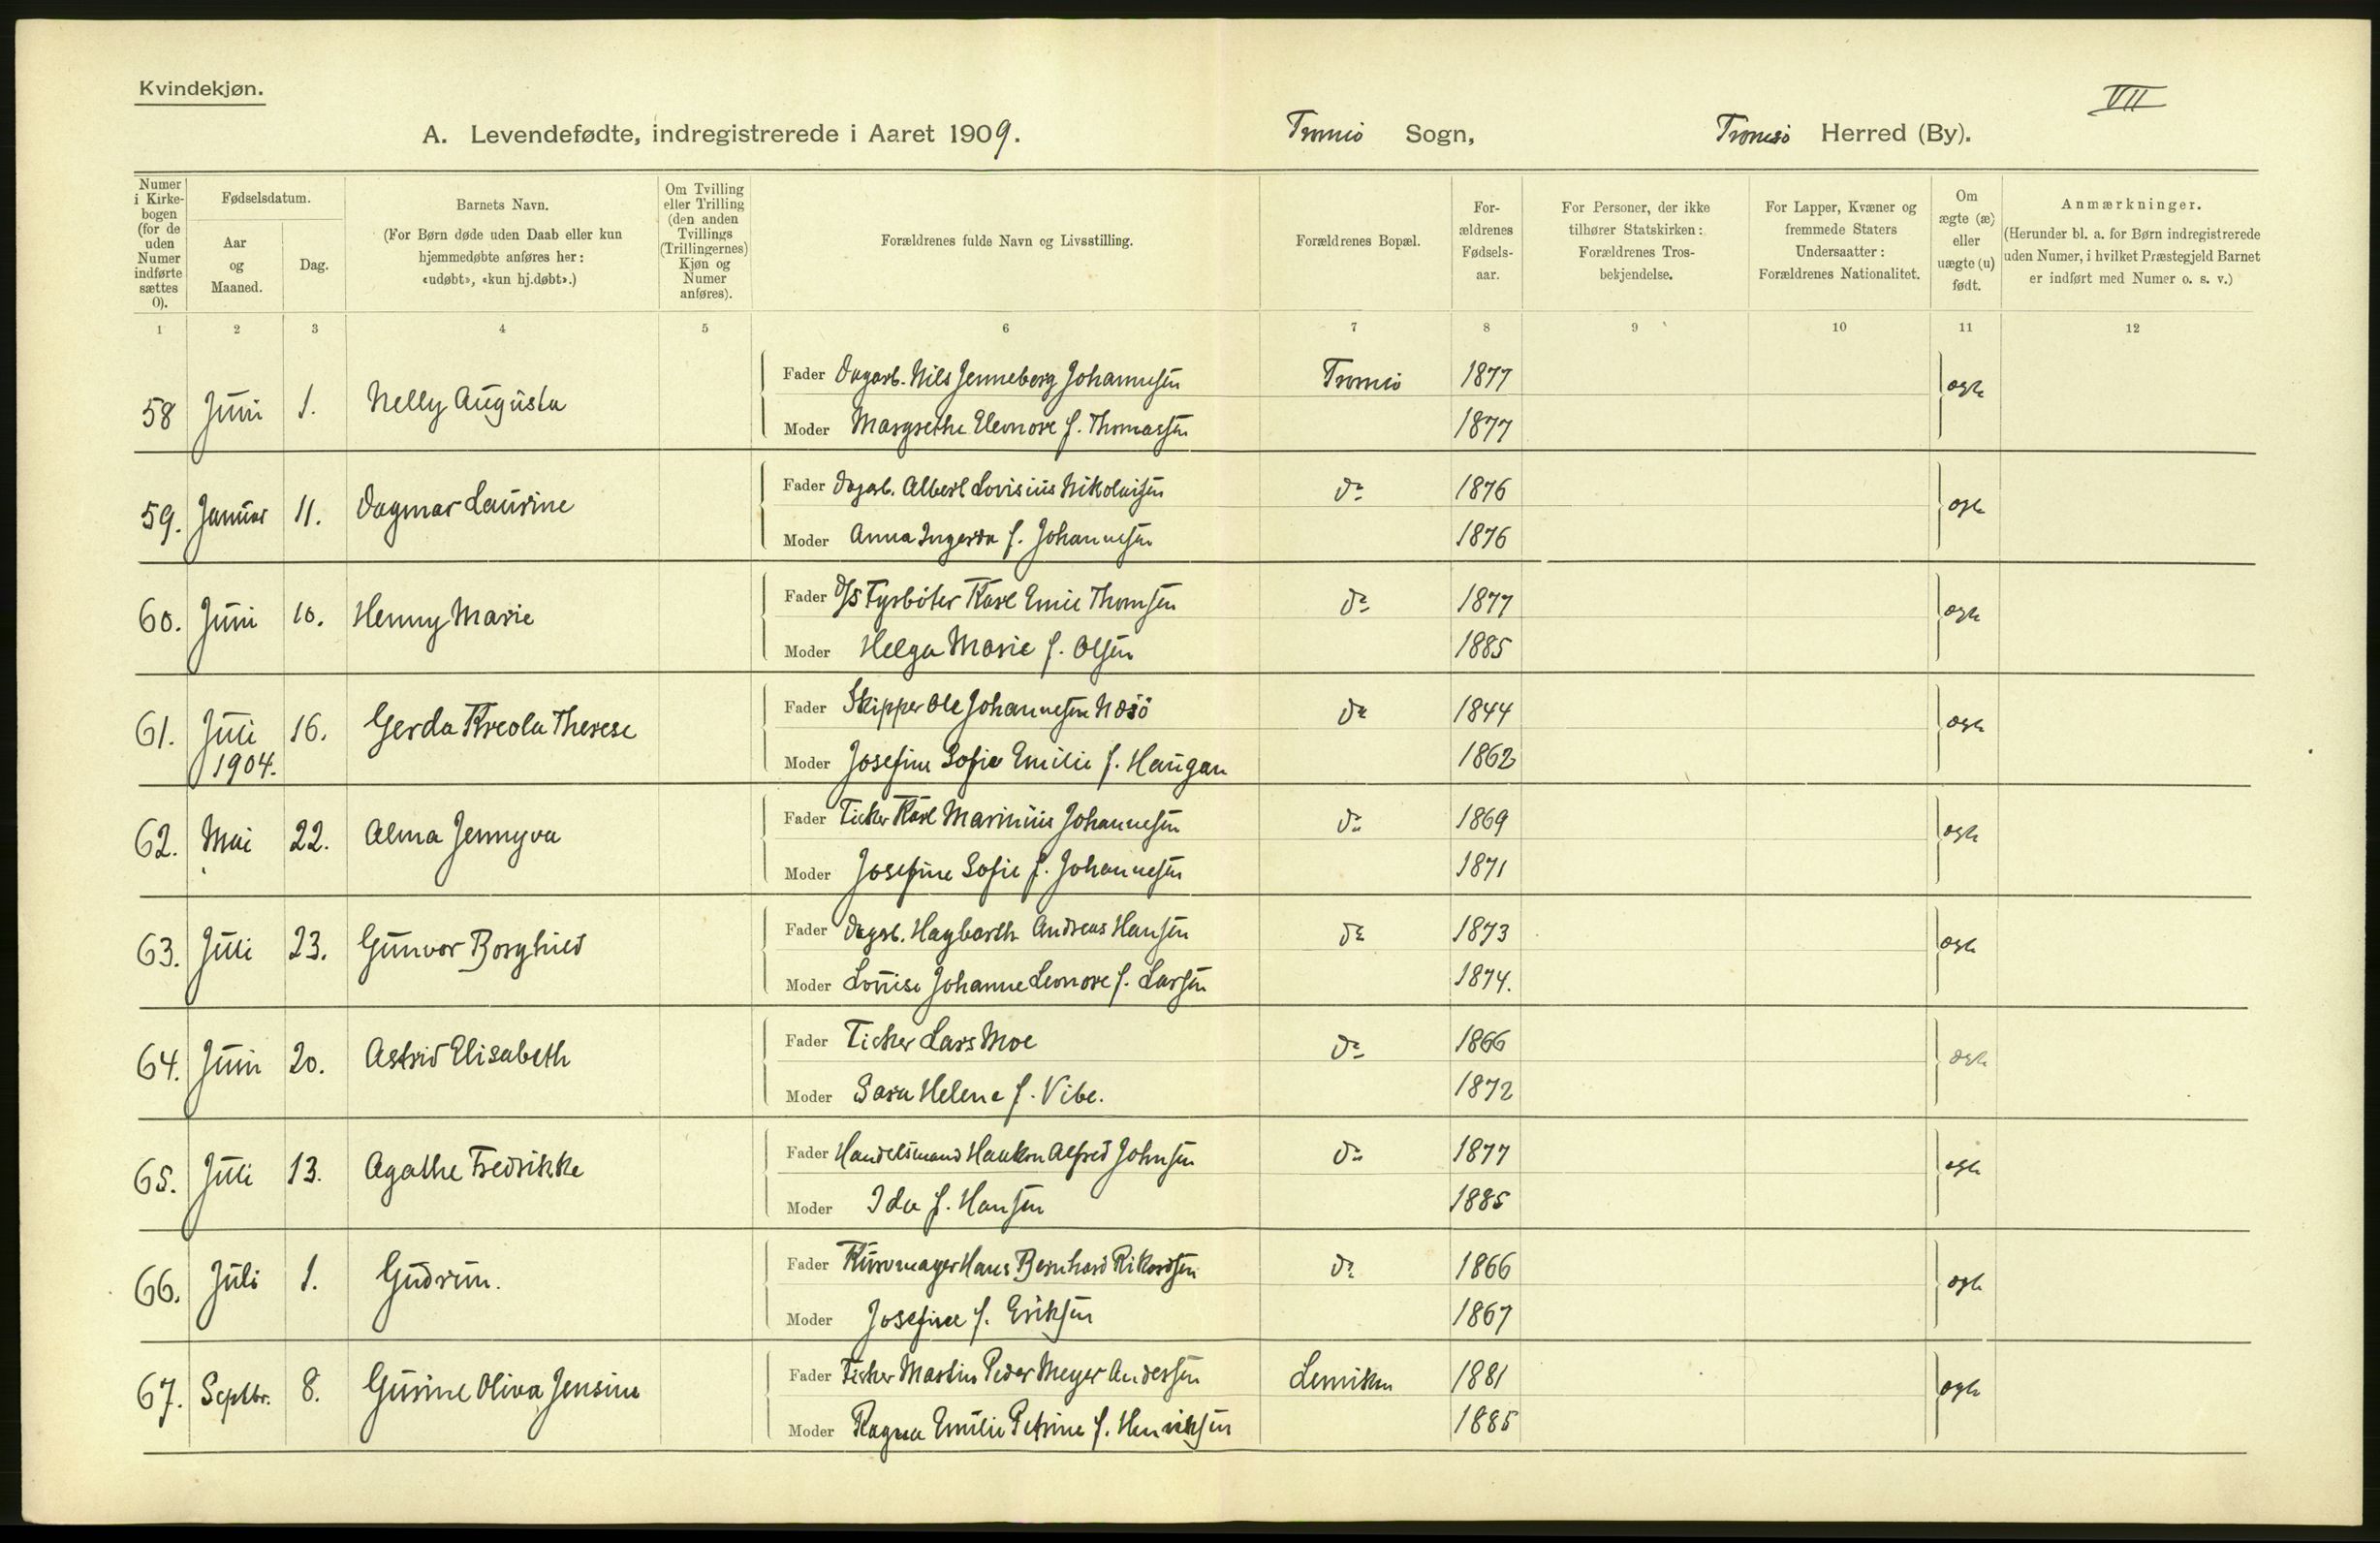 Kvindekjøn.
VII
A. Levendefødte, indregistrerede i Aaret 1909. Tromsö Sogn, Tromsö Herred (By).
Numer i Kirkebogen (for de uden Numer indførte sættes 0).
Fødselsdatum.
Aar og Maaned.
Dag.
Barnets Navn.
(For Børn døde uden Daab eller kun hjemmedøbte anføres her: «udøbt», «kun hj.døbt».)
Om Tvilling eller Trilling (den anden Tvillings (Trillingernes) Kjøn og Numer anføres).
Forældrenes fulde Navn og Livsstilling.
Forældrenes Bopæl.
For-ældrenes Fødsels-aar.
For Personer, der ikke tilhører Statskirken: Forældrenes Tros-bekjendelse.
For Lapper, Kvæner og fremmede Staters Undersaatter: Forældrenes Nationalitet.
Om ægte (æ) eller uægte (u) født.
Anmærkninger.
(Herunder bl. a. for Børn indregistrerede uden Numer, i hvilket Præstegjeld Barnet er indført med Numer o. s. v.)
1 2 3 4 5 6 7 8 9 10 11 12
58 Juni 1. Nelly Augusta Fader Dagarb. Nils Jenneberg Johannesen Tromsö 1877 ægte
Moder Margrethe Eleonore f. Thomassen 1877
59. Januar 11. Dagmar Laurine Fader Dagarb. Albert Lovisius Nikolaisen Do 1876 ægte
Moder Anna Ingerda f. Johannesen 1876
60. Juni 10. Henny Marie Fader D/S Fyrböter Karl Emil Thomsen Do 1877 ægte
Moder Helga Marie f. Olsen 1885
61. Juli 1904. 16. Gerda Kreola Therese Fader Skipper Ole Johannesen Næsö Do 1844 ægte
Moder Josefine Sofie Emilie f. Haugan 1862
62. Mai 22. Alma Jennyva Fader Fisker Karl Marinius Johannesen Do 1869 ægte
Moder Josefine Sofie f. Johannesen 1871
63. Juli 23. Gunvor Borghild Fader Dagarb. Hagbarth Andreas Hansen Do 1873 ægte
Moder Louise Johanne Leonore f. Larsen 1874.
64. Juni 20. Astrid Elisabeth Fader Fisker Lars Moe Do 1866 ægte
Moder Sara Helene f. Vibe. 1872
65. Juli 13. Agathe Fredrikke Fader Handelsmand Haakon Alfred Johnsen Do 1877 ægte
Moder Ida f. Hansen 1885
66. Juli 1. Gudrun. Fader Kurvmager Hans Bernhard Rikardsen Do 1866 ægte
Moder Josefine f. Eriksen 1867
67. Septbr. 8. Gusine Oliva Jensine Fader Fisker Martin Peder Meyer Anderssen Lenviken 1881 ægte
Moder Ragna Emilie Petrine f. Henriksen 1885